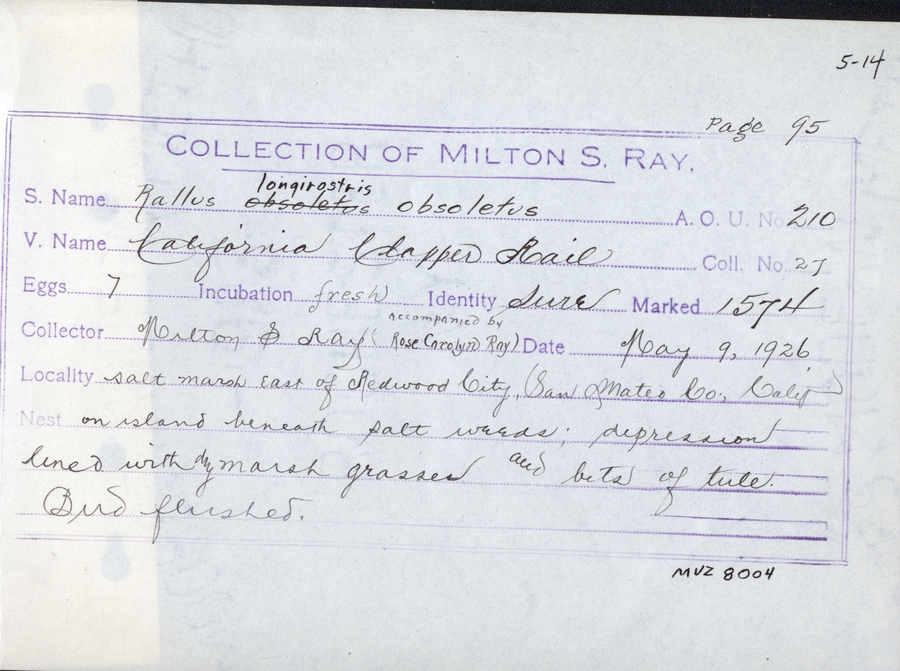 5-14
Page 95
COLLECTION OF MILTON S. RAY.
longirostris
S. Name Rallus obsoletus obsoletus A. O. U. No. 210
V. Name California Clapper Rail Coll. No. 27
Eggs 7 Incubation fresh Identity Sure Marked 1574
accompanied by
Collector Milton S Ray (Rose Carolyn Ray) Date May 9, 1926
Locality salt marsh East of Redwood City, (San Mateo Co., Calif)
Nest on island beneath salt weeds; depression
lined with dry marsh grasses and bits of tule.
Bird flushed.
MVZ 8004